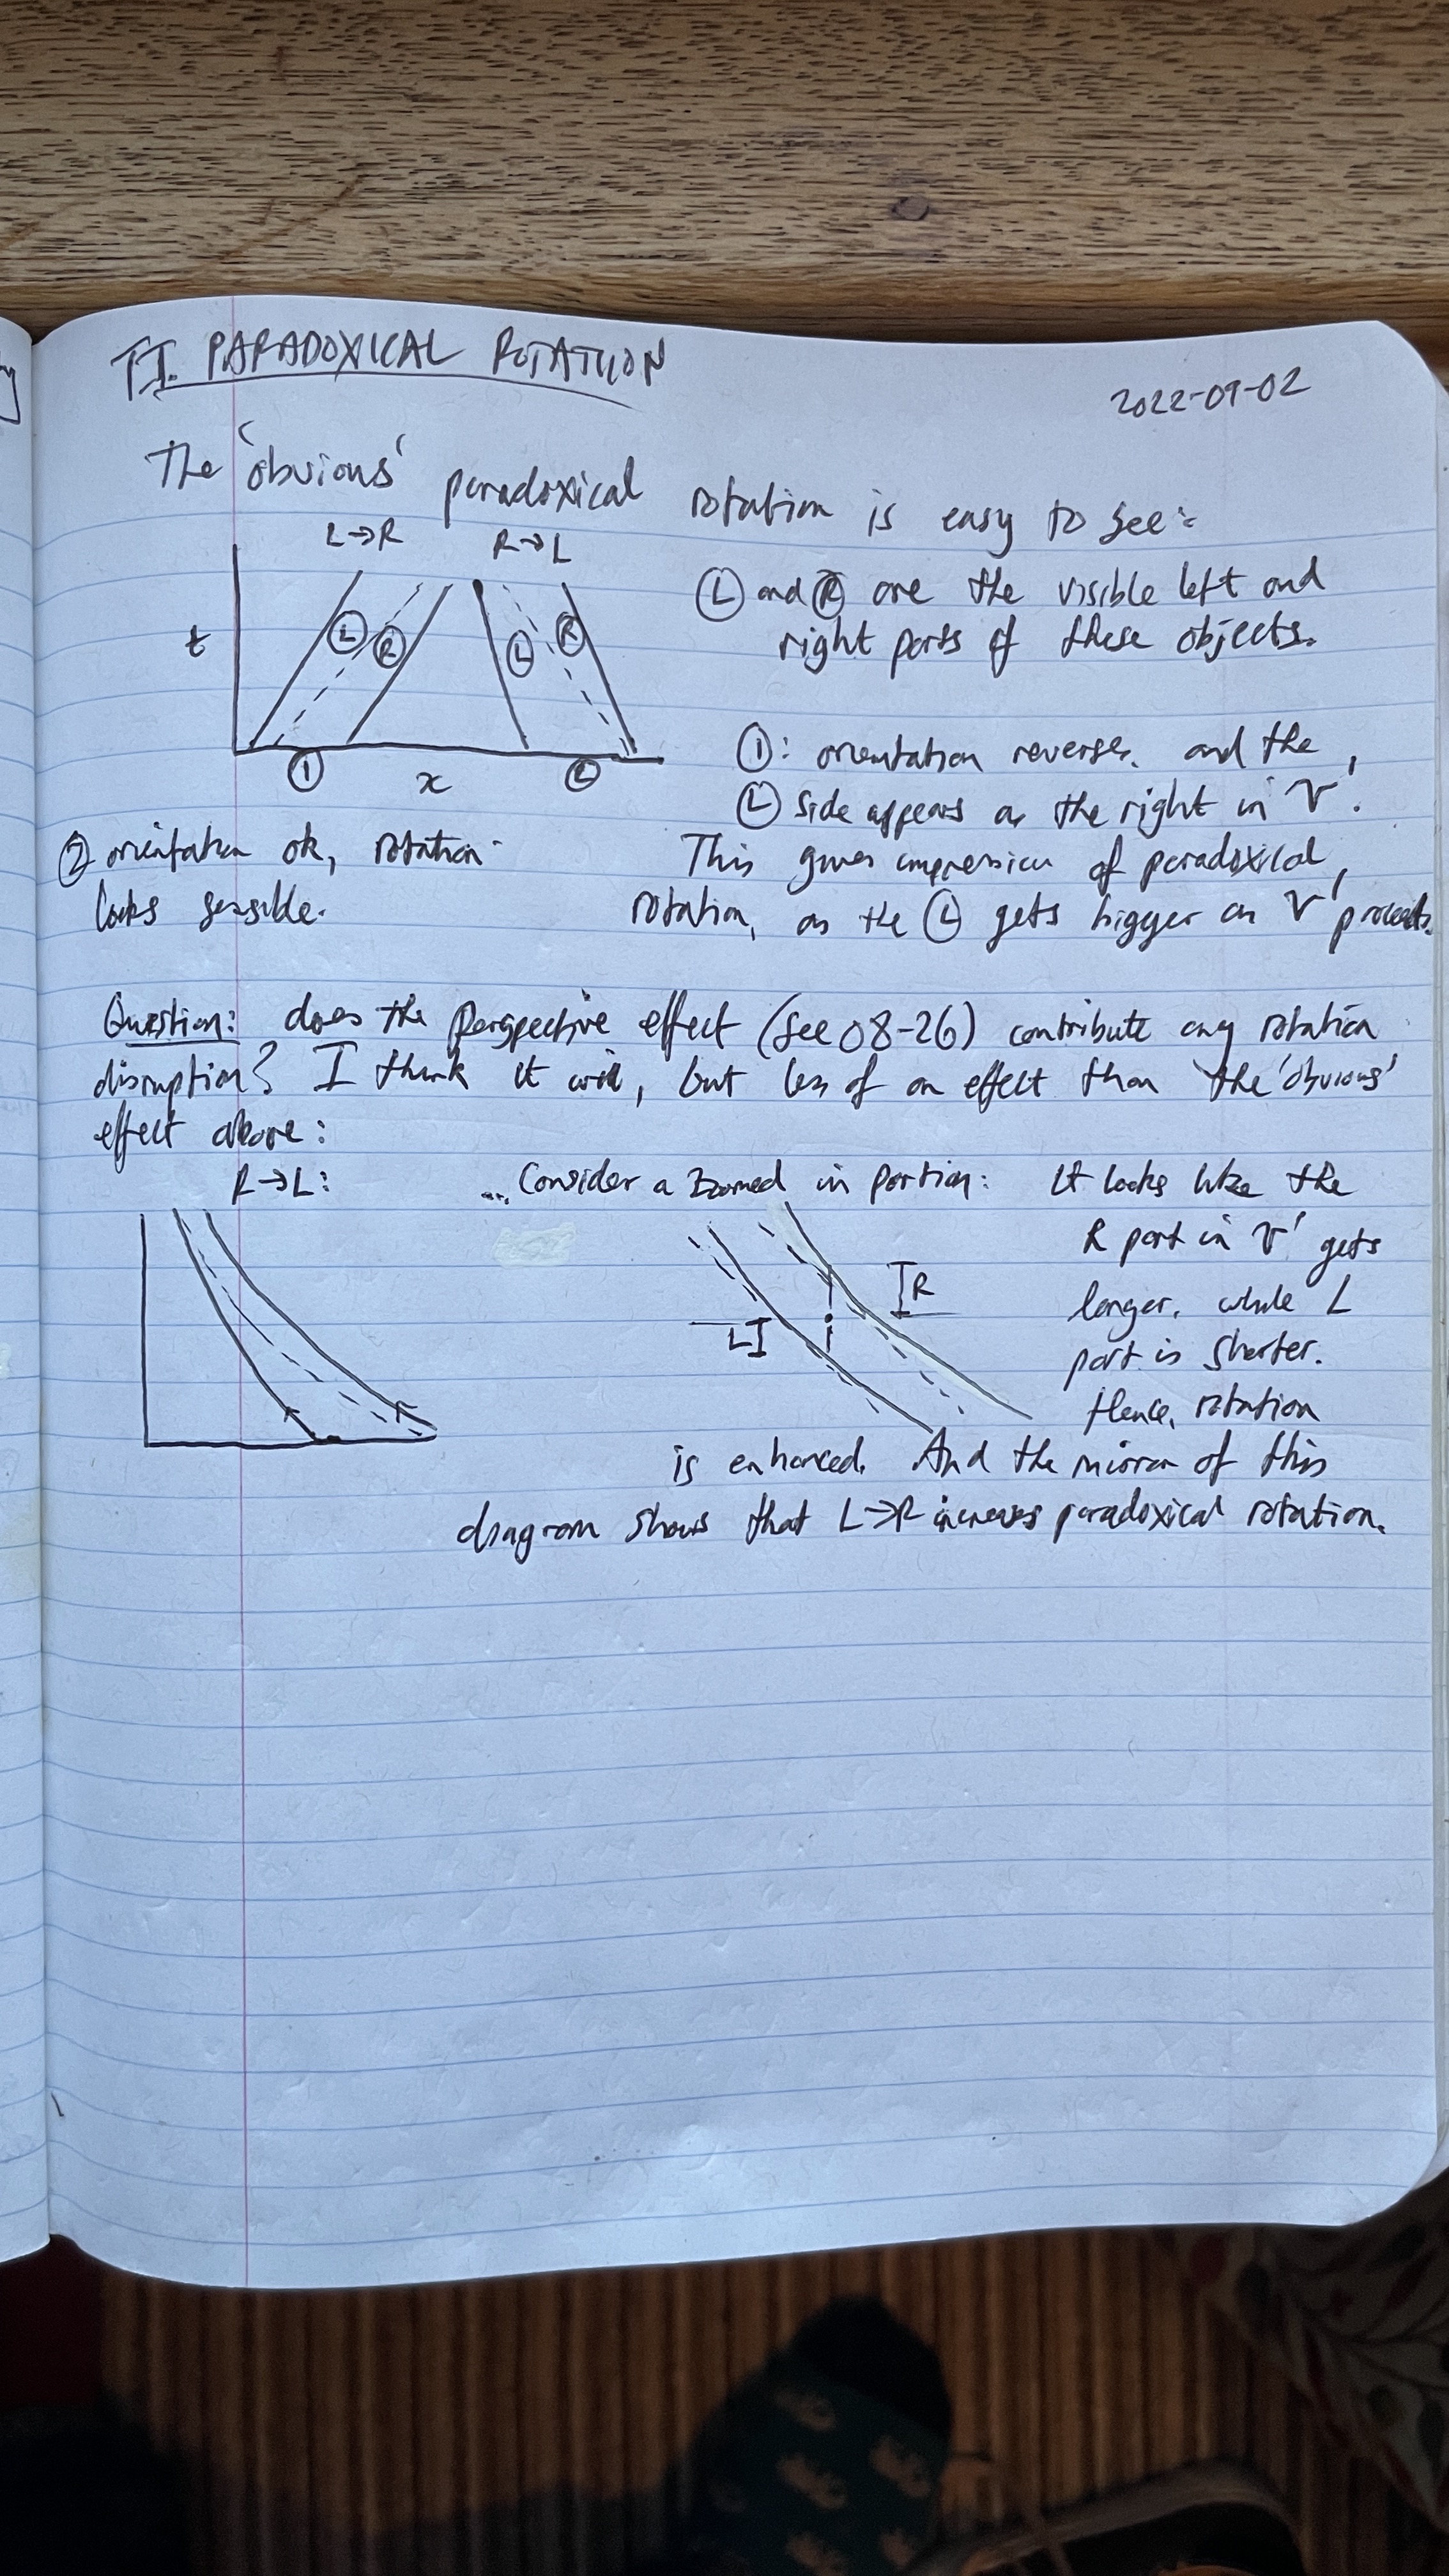 T.I. PARADOXICAL ROTATION
2022-09-02
The 'obvious' paradoxical rotation is easy to see:
L→R R→L
Ⓛ and Ⓡ are the visible left and
right parts of these objects.
t
Ⓛ Ⓡ Ⓛ Ⓡ
① x ②
①: orientation reverses. and the
Ⓛ side appears as the right in V'.
② orientation ok, rotation
looks sensible.
This gives impression of paradoxical
rotation, as the Ⓛ gets bigger as V' proceeds.
Question: does the perspective effect (see 08-26) contribute any rotation
disruption? I think it will, but less of an effect than the 'obvious'
effect above:
R→L:
... Consider a zoomed in portion:
It looks like the
R part in V' gets
longer, while L
part is shorter.
Hence, rotation
R
L
is enhanced. And the mirror of this
diagram shows that L→R increases paradoxical rotation.